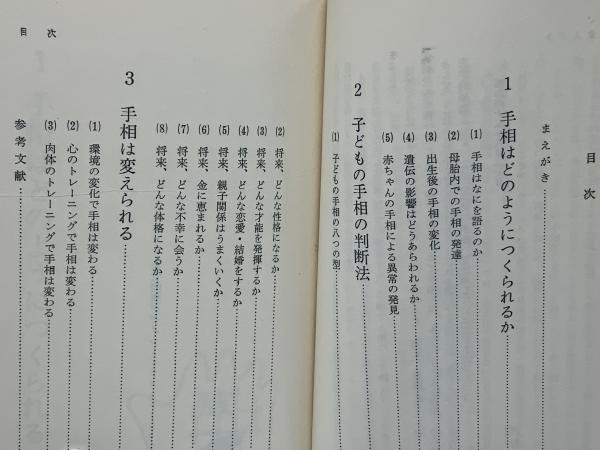 目次
まえがき……………
1 手相はどのようにつくられるか……………
(1) 手相はなにを語るのか……………
(2) 母胎内での手相の発達……………
(3) 出生後の手相の変化……………
(4) 遺伝の影響はどうあらわれるか……………
(5) 赤ちゃんの手相による異常の発見……………
2 子どもの手相の判断法……………
(1) 子どもの手相の八つの型……………
(2) 将来、どんな性格になるか……………
(3) 将来、どんな才能を発揮するか……………
(4) 将来、どんな恋愛・結婚をするか……………
(5) 将来、親子関係はうまくいくか……………
(6) 将来、金に恵まれるか……………
(7) 将来、どんな不幸に会うか……………
(8) 将来、どんな体格になるか……………
3 手相は変えられる……………
(1) 環境の変化で手相は変わる……………
(2) 心のトレーニングで手相は変わる……………
(3) 肉体のトレーニングで手相は変わる……………
参考文献……………
目次